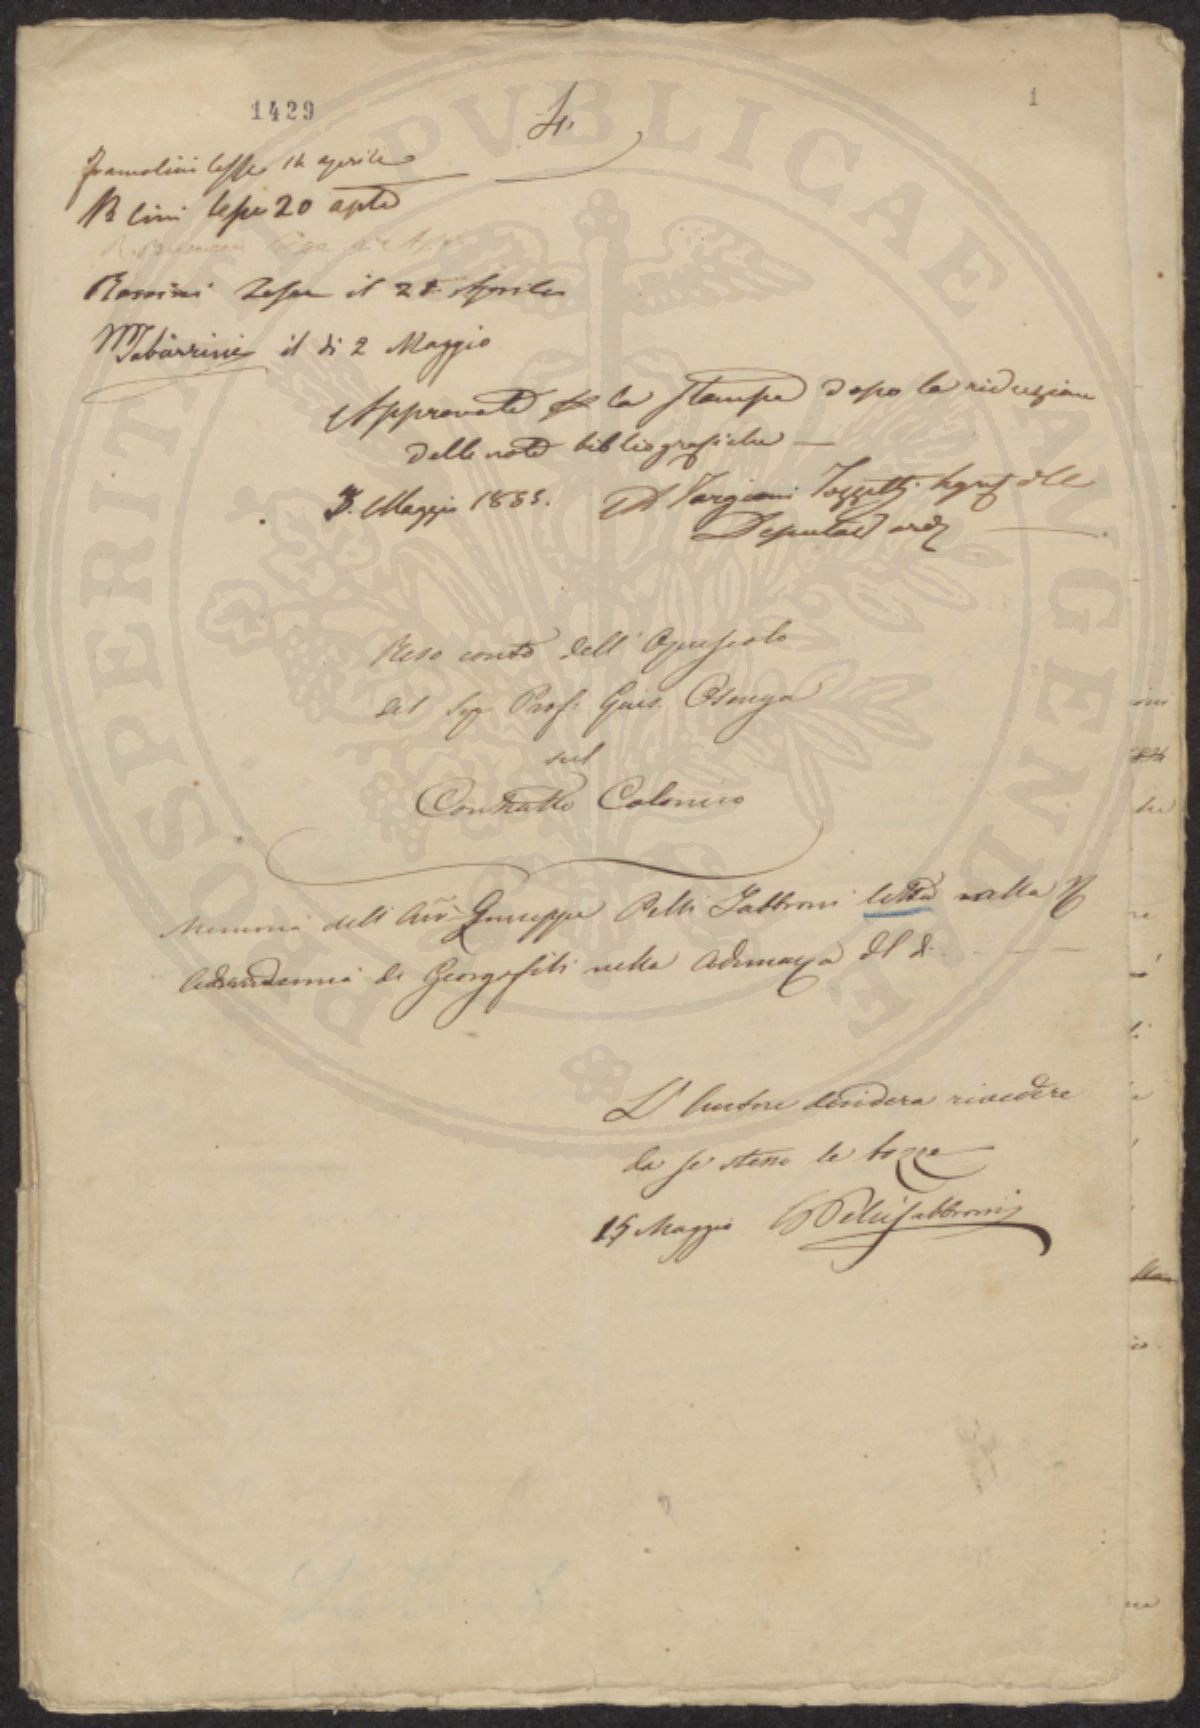 1429
1
4.
lesse 14 aprile
20 aple
Rossini Lesse il 28 Aprile
MTabarrini il di 2 Maggio
Approvata per la stampa dopo la riduzione
delle note bibliografiche
3. Maggio 1885. Targioni Tozzetti
Deputato
Reso conto dell' Opuscolo
del Sigr Prof: Gius.
sul
Contratto Colonico
Memoria dell' Avv. Giuseppe Pelli Fabbroni letta nella R
Accademia de Georgofili nella Adunanza del dì
L' Autore desidera rivedere
da se stesso le bozze
15 Maggio GPelliFabbroni
PROSPERITATI PVBLICAE AVGENDAE